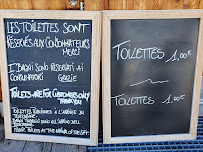 LES TOILETTES SONT
RÉSERVÉS AUX CONSOMMATEURS
MERCI
I BAGNI SONO RISERVATI AI
CONSUMATORI GRAZIE
TOILETS ARE FOR CUSTOMERS ONLY
THANK YOU
TOILETTES PUBLIQUES À L'ARRIVÉE DU
TOILETTES 1,00€
TOILETTES 1,00€